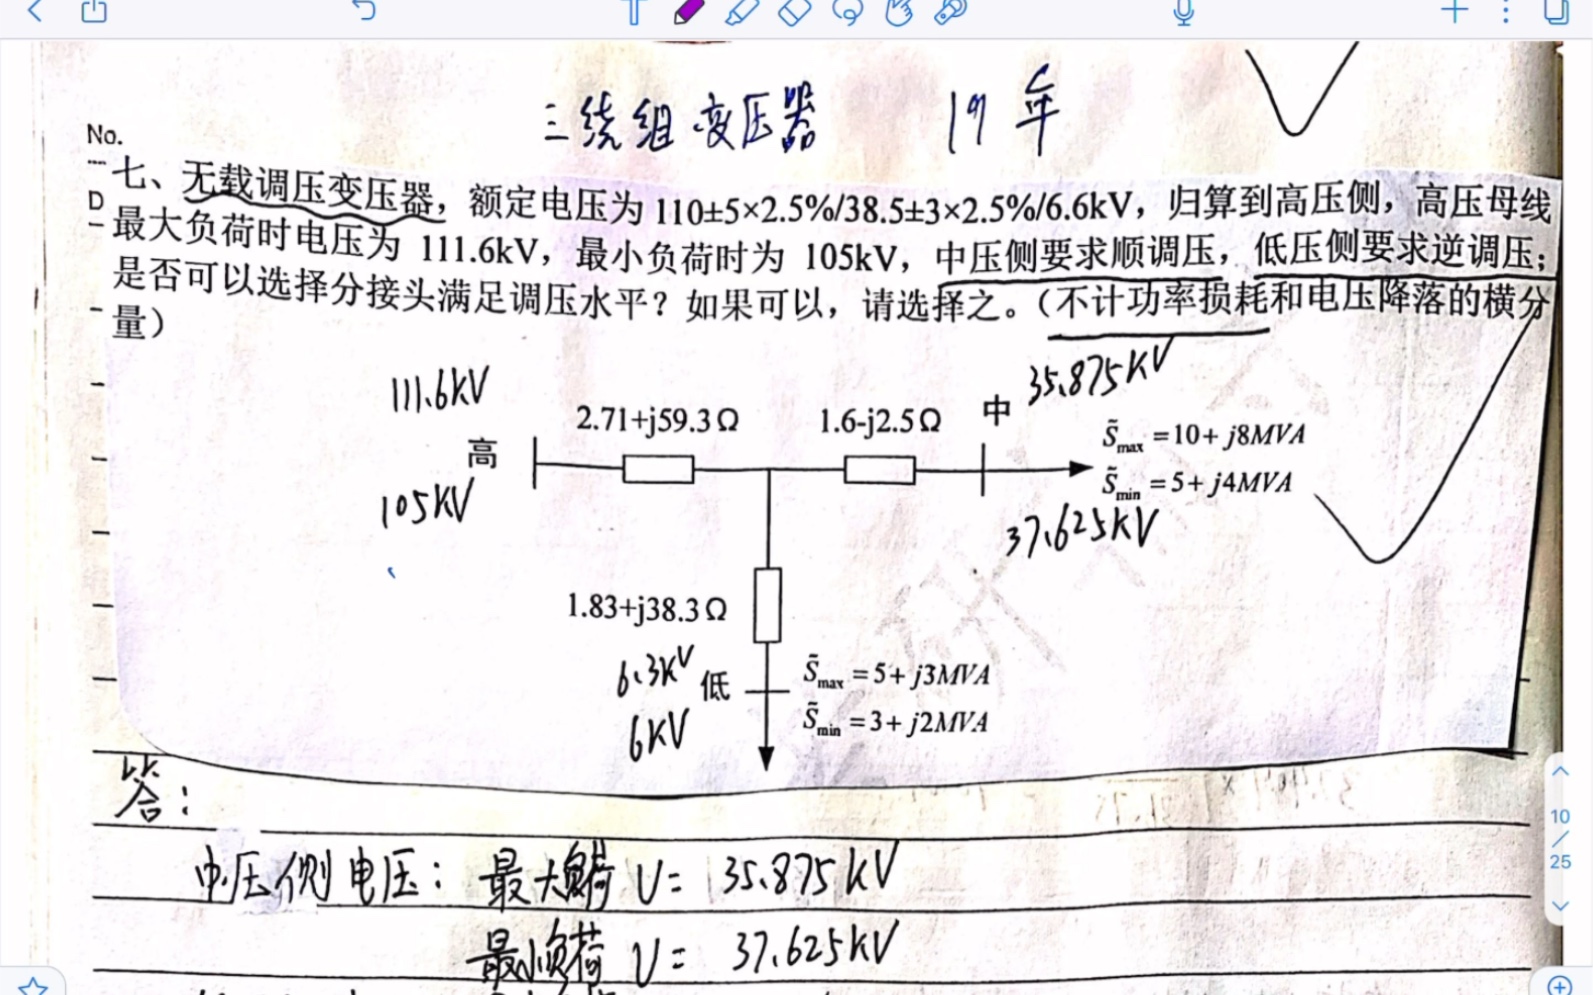 三绕组变压器 19年
No.
D
七、无载调压变压器，额定电压为 110±5×2.5%/38.5±3×2.5%/6.6kV，归算到高压侧，高压母线
最大负荷时电压为 111.6kV，最小负荷时为 105kV，中压侧要求顺调压，低压侧要求逆调压；
是否可以选择分接头满足调压水平？如果可以，请选择之。（不计功率损耗和电压降落的横分
量）
111.6kV
35.875KV
2.71+j59.3Ω
1.6-j2.5Ω
中
高
S̃max =10+ j8MVA
S̃min =5+ j4MVA
105KV
37.625KV
1.83+j38.3Ω
6.3KV
低
6KV
S̃max =5+ j3MVA
S̃min =3+ j2MVA
答：
中压侧电压：最大负荷 U= 35.875KV
最小负荷 U= 37.625KV
10
/
25